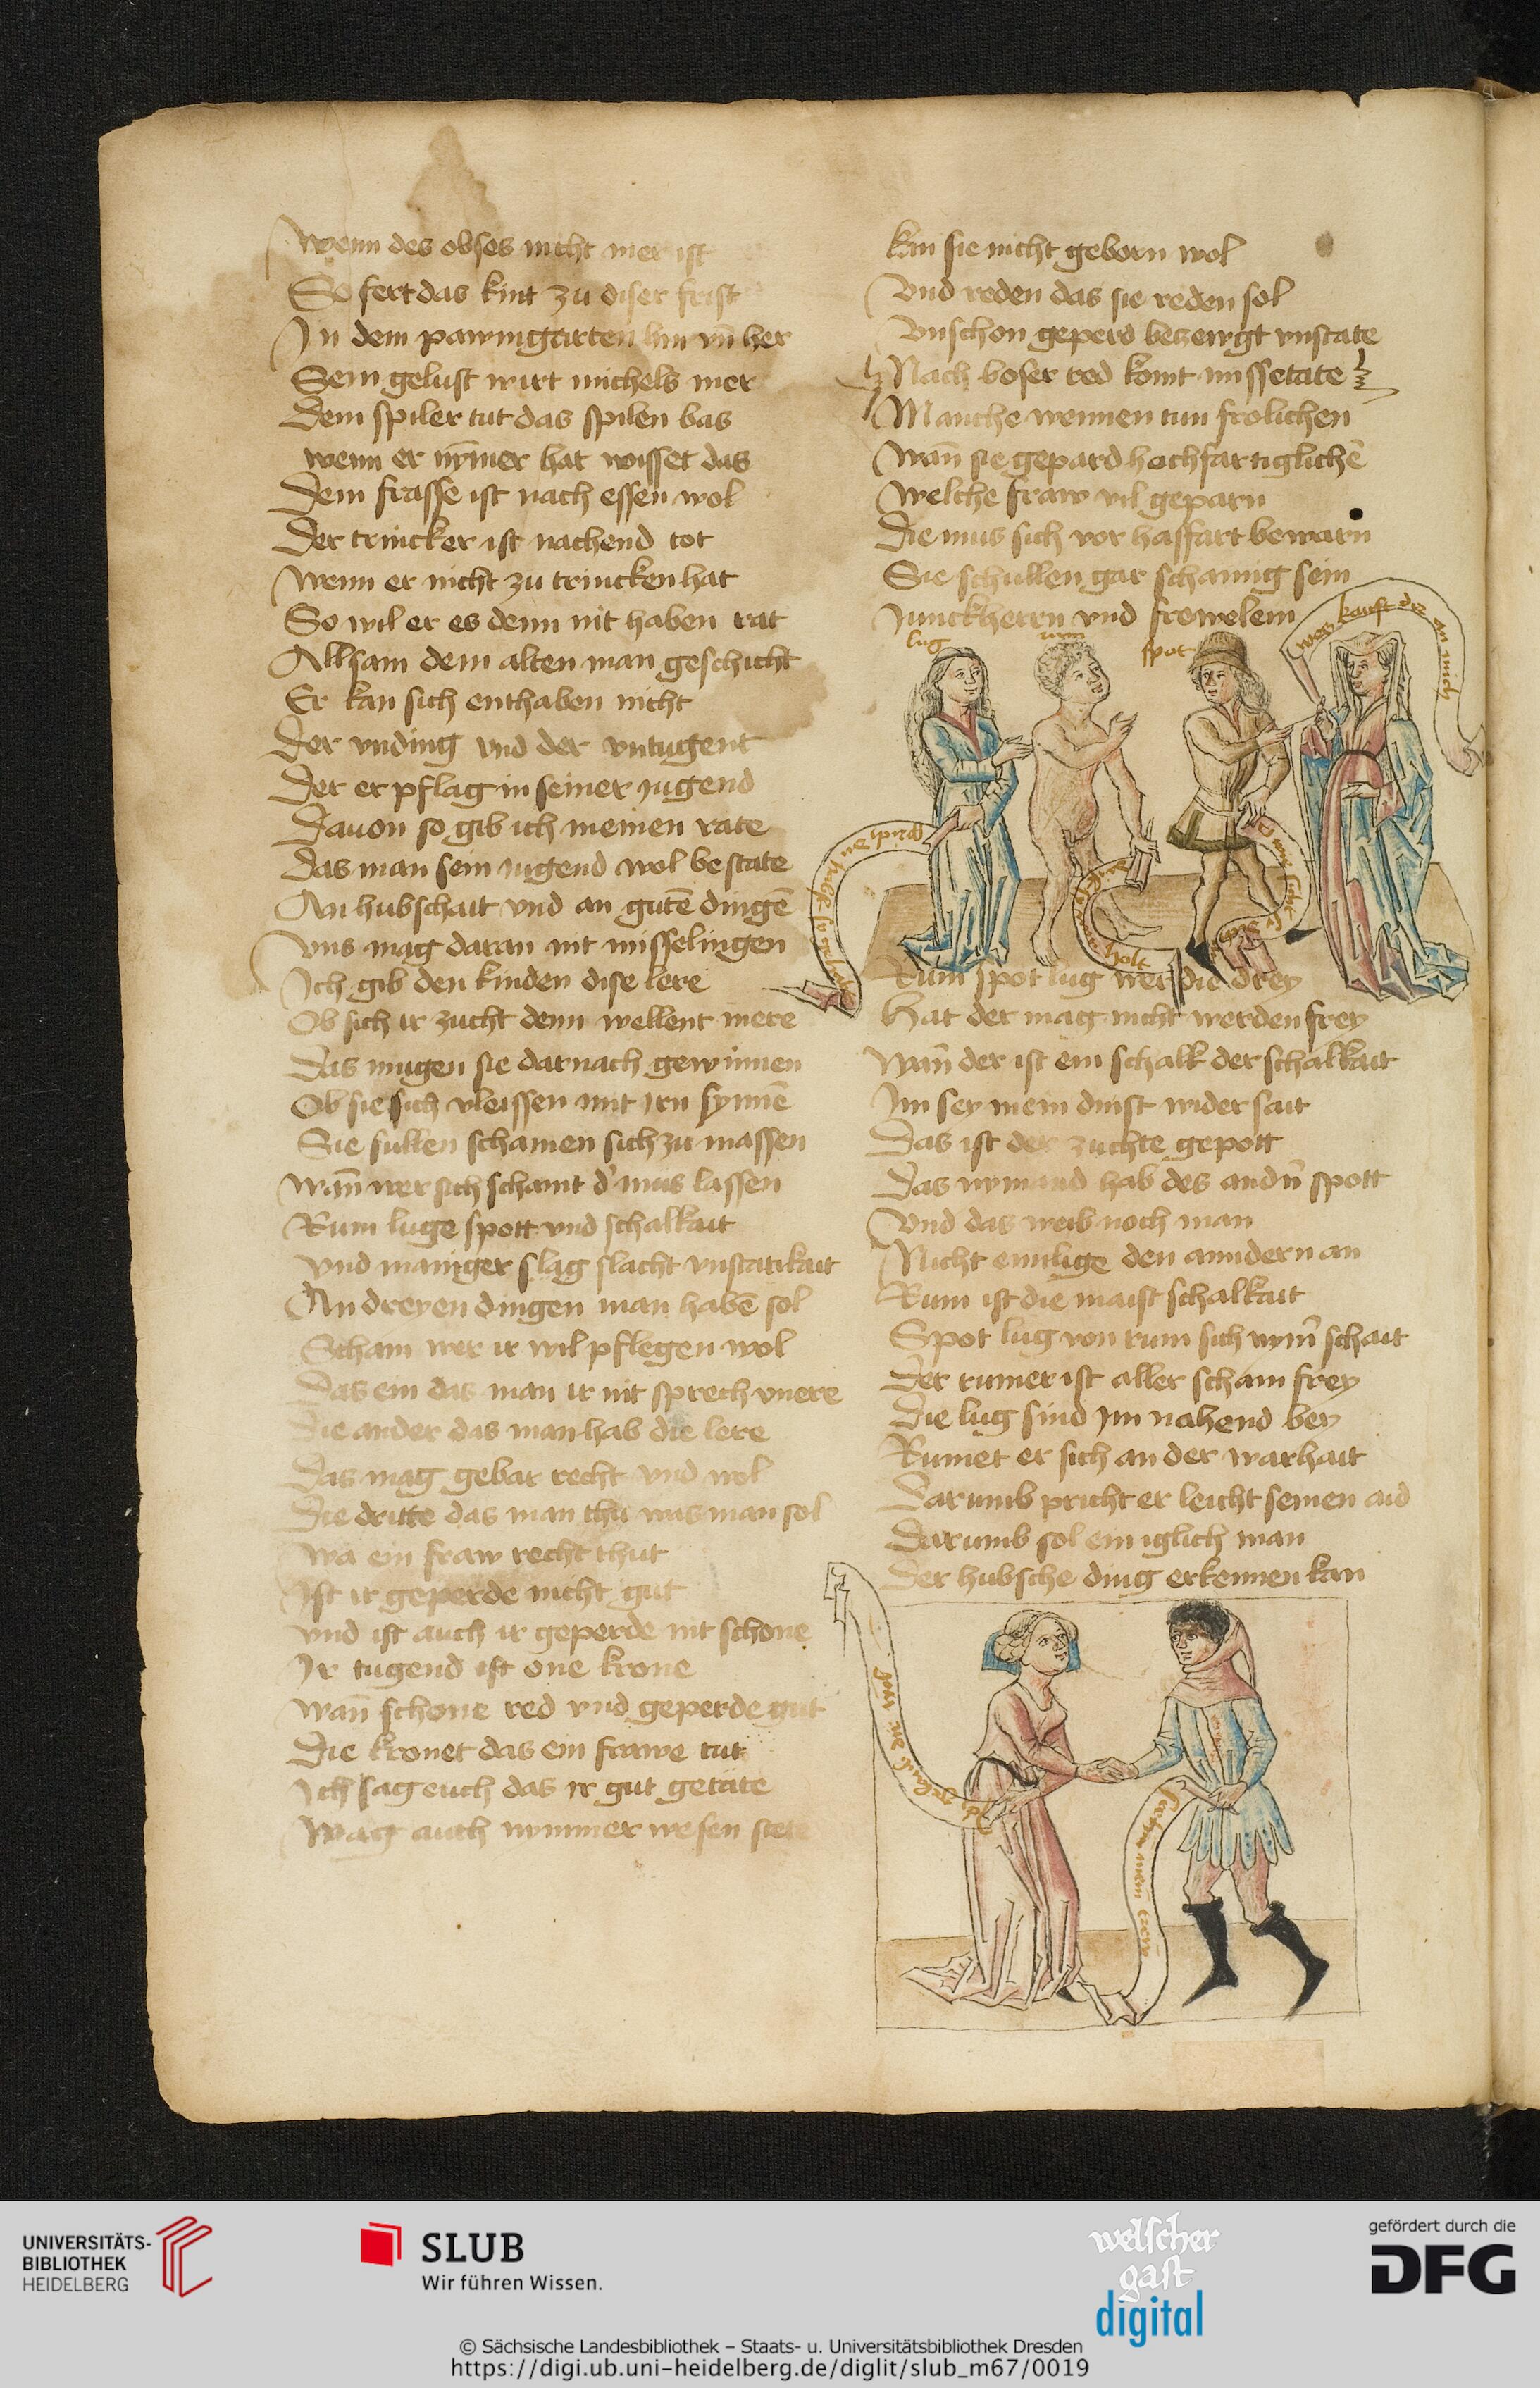 Wenn des obses nicht mer ist
So fert das kint zu diser frist
In dem pawmgarten hin vn̄ her
Sein gelust wirt michels mer
Dem spiler tut das spilen bas
wenn er nȳmer hat wisset das
Dem frasse ist nach essen wol
Der trincker ist nachend tot
Wenn er nicht zu trincken hat
So wil er es denn nit haben rat
Allsam dem alten man geschicht
Er kan sich enthaben nicht
Der vnding vnd der vntugent
Der er pflag in seiner jugend
Dauon so gib ich meinen rate
Das man sein jugend wol bestate
An hubschait vnd an gutē dingē
Vns mag daran nit misselingen
Ich gib den kinden dise lere
Ob sich ir zucht denn wellent mere
Das mugen sie darnach gewinnen
Ob sie sich vleissen mit irn synnē
Sie sullen schamen sich zu massen
Wan̄ wer sich schamt d' mus lassen
Rum luge spott vnd schalkait
Vnd maniger slag slacht vnstatikait
An dreyen dingen man habē sol
Scham wer ir wil pflegen wol
Das ein das man ir nit sprech vnere
Die ander das man hab die lere
Das mag gebar recht vnd wol
Die dritte das man thu was man sol
Wa ein fraw recht thut
Ist ir geperde nicht gut
vnd ist auch ir geperde nit schone
Ir tugend ist one krone
Wan̄ schone red vnd geperde gut
Die kronet das ein frawe tut
Ich sag euch das ir gut getäte
Mag auch nymmer wesen stete
kan sie nicht geborn wol
Vnd reden das sie reden sol
Vnschon geperd bezewgt vnstate
Nach boser red komt missetate
Manche wennen tun frolichen
Wan̄ sie gepard hochfartiglichē
Welche fraw vil geparn
Die mus sich vor haffart bewarn
Sie schullen gar schamig sein
Junckherrn vnd frowelein
lug
rum
spot
wer kauft
an mich
Rum spot lug wer die drey
Hat der mag nicht werden frey
Wan̄ der ist ein schalk der schalkait
Im sey mein dinst wider sait
Das ist der zuchte gepott
Das nymand hab des andn̄ spott
Vnd das weib noch man
Nicht ennlige den anndern an
Rum ist die maist schalkait
Spot lug von rum sich nym̄ schait
Der rumer ist aller scham frey
Die lug sind im nahend bey
Rumet er sich an der warhait
Darumb pricht er leicht seinen aid
Darumb sol ein iglich man
Der hubsche ding erkennen kan
UNIVERSITÄTS-
BIBLIOTHEK
HEIDELBERG
SLUB
Wir führen Wissen.
welscher
gast
digital
gefördert durch die
DFG
© Sächsische Landesbibliothek – Staats- u. Universitätsbibliothek Dresden
https://digi.ub.uni-heidelberg.de/diglit/slub_m67/0019